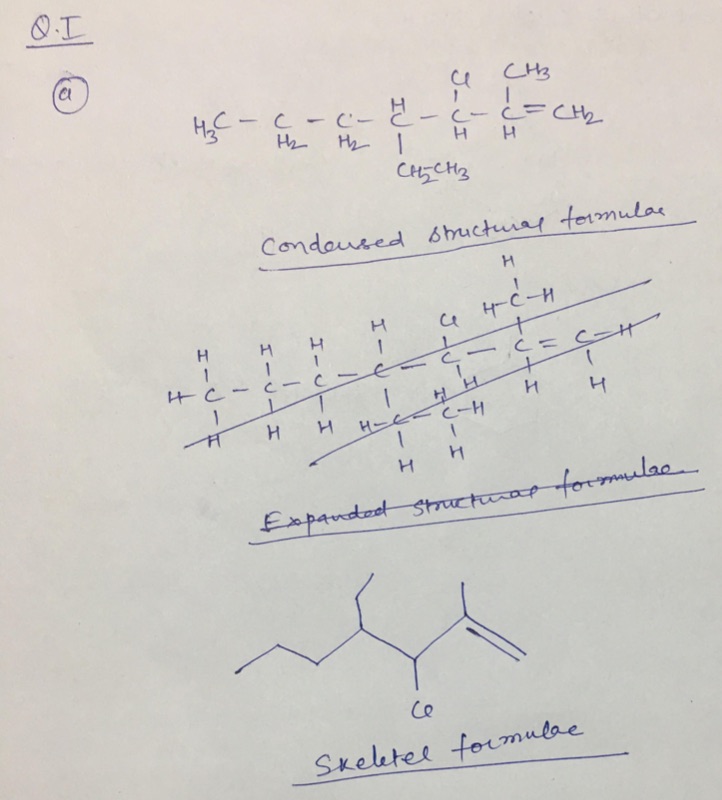 Q.I
a
Cl CH3
H
H3C - C - C - C - C - C = CH2
H2 H2 H H
CH2-CH3
Condensed structural formulae
H
H-C-H
H H H H Cl
H-C - C - C - C - C - C = C-H
H H H H H H
H
H-C - C-H
H H
Expanded structural formulae
Cl
Skeletel formulae